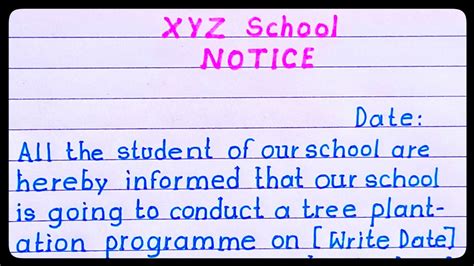 XYZ School
NOTICE
Date:
All the student of our school are
hereby informed that our school
is going to conduct a tree plant-
ation programme on [Write Date]